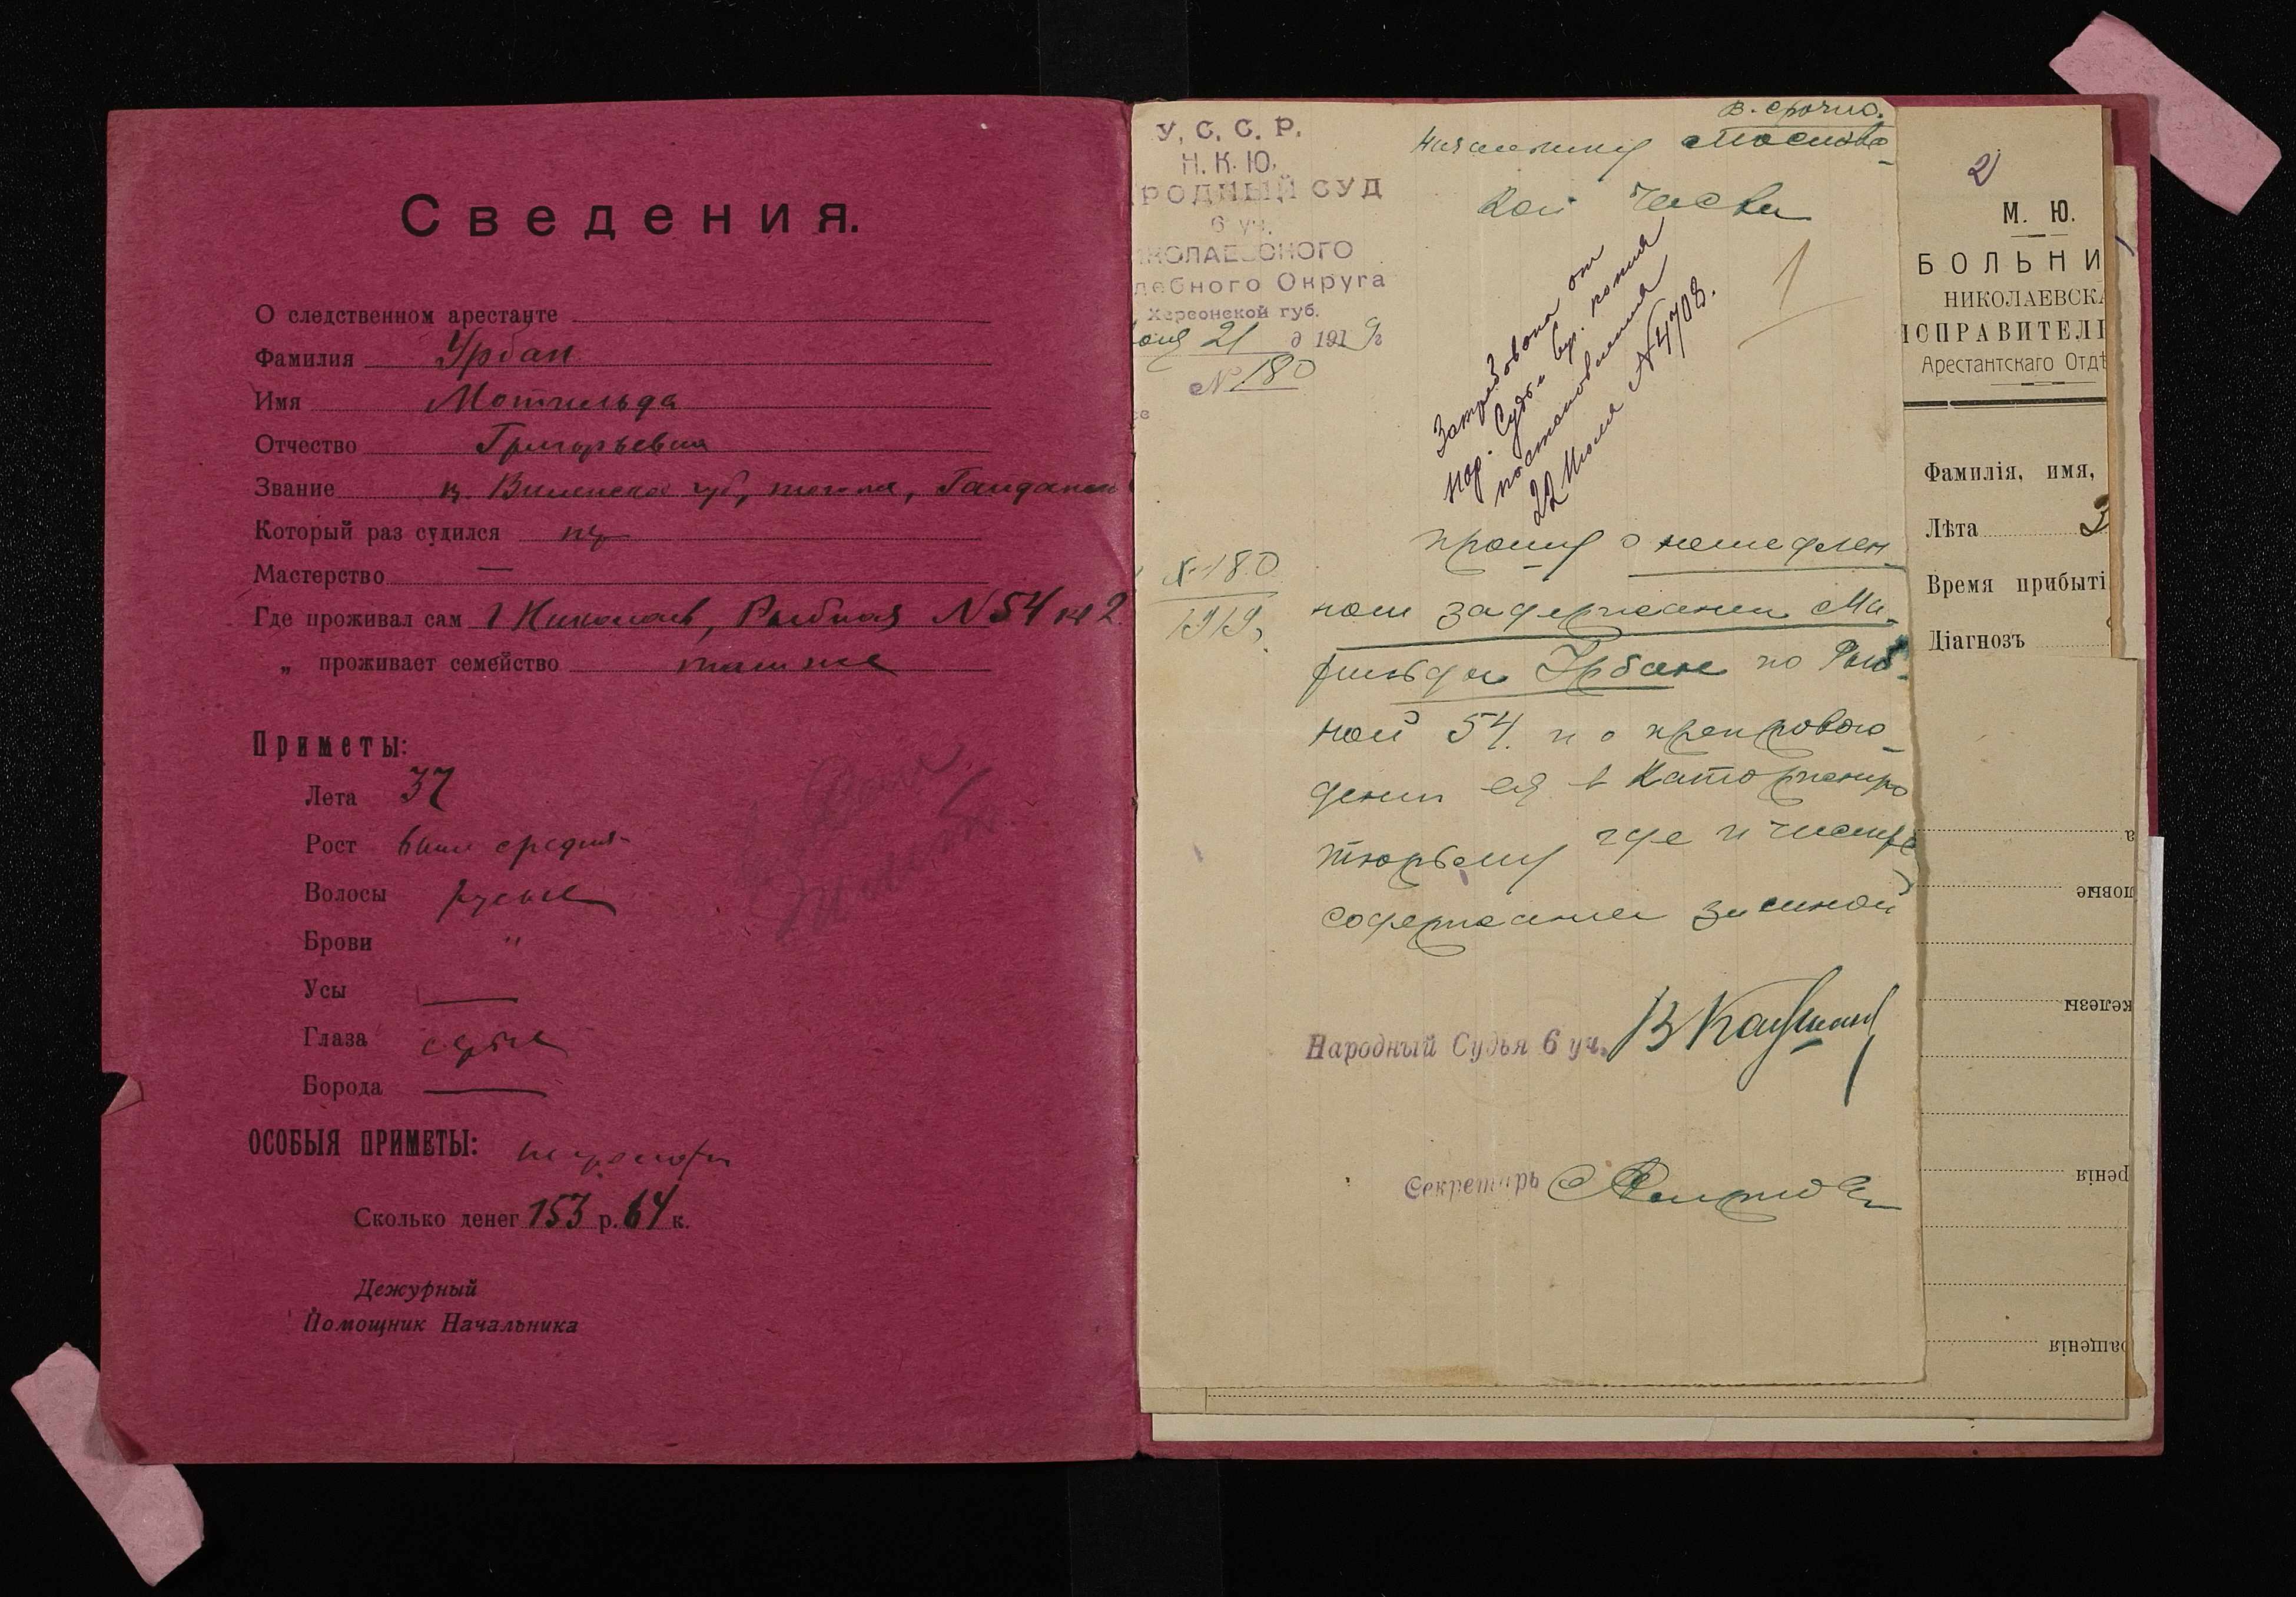 Сведения.
О следственном арестанте
Фамилия Урбан
Имя Мотильда
Отчество Григорьевна
Звание Виленской губ,
Который раз судился
Мастерство —
Где проживал сам г Николаев, Рыбная N 54 кв 2.
„ проживает семейство там же
Приметы:
Лета 37
Рост выше средня
Волосы русые
Брови "
Усы —
Глаза серые
Борода —
ОСОБЫЯ ПРИМЕТЫ:
Сколько денег 153 р. 64 к.
Дежурный
Помощник Начальника
У. С. С. Р.
Н. К. Ю.
РОДНЫЙ СУД
6 уч.
ИКОЛАЕВСКОГО
дебного Округа
Херсонской губ.
21 д 1919г
№ 180
В. Срочно.
Начальнику Москов-
кой части
Затребована от
Нар. Судьи 6 уч. копия
постановления
22 Июля N 4708.
1
№ 180
1919.
прошу о немедлен
ном задержании Ма-
тильды Урбан по Рыб-
ной 54. и о препровож-
дении ея в Каторжную
тюрьму где и числить
содержанием за мной
Народный Судья 6 уч. В Кауфман
Секретарь
2
М. Ю.
БОЛЬНИ
НИКОЛАЕВСКА
ИСПРАВИТЕЛЬ
Арестантскаго Отдѣ
Фамилія, имя,
Лѣта 3
Время прибыті
Діагнозъ
а
ловые
железы
ренія
ращенія